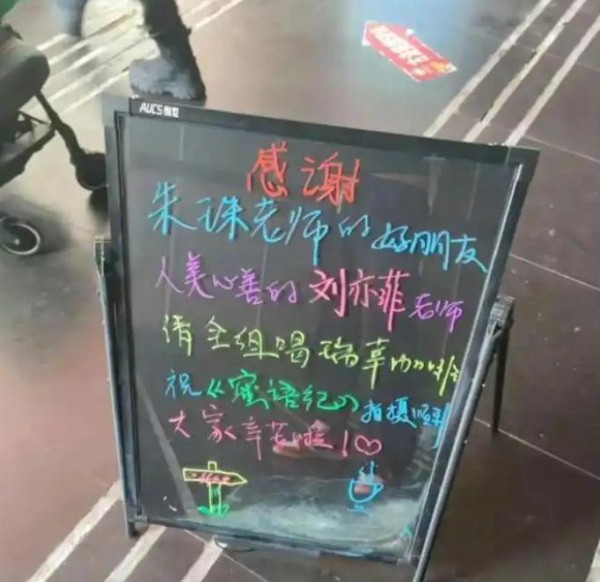 AUCS
感谢
朱珠老师的好朋友
人美心善的刘亦菲老师
请全组喝瑞幸咖啡
祝《蜜语纪》拍摄顺利
大家辛苦啦！♡